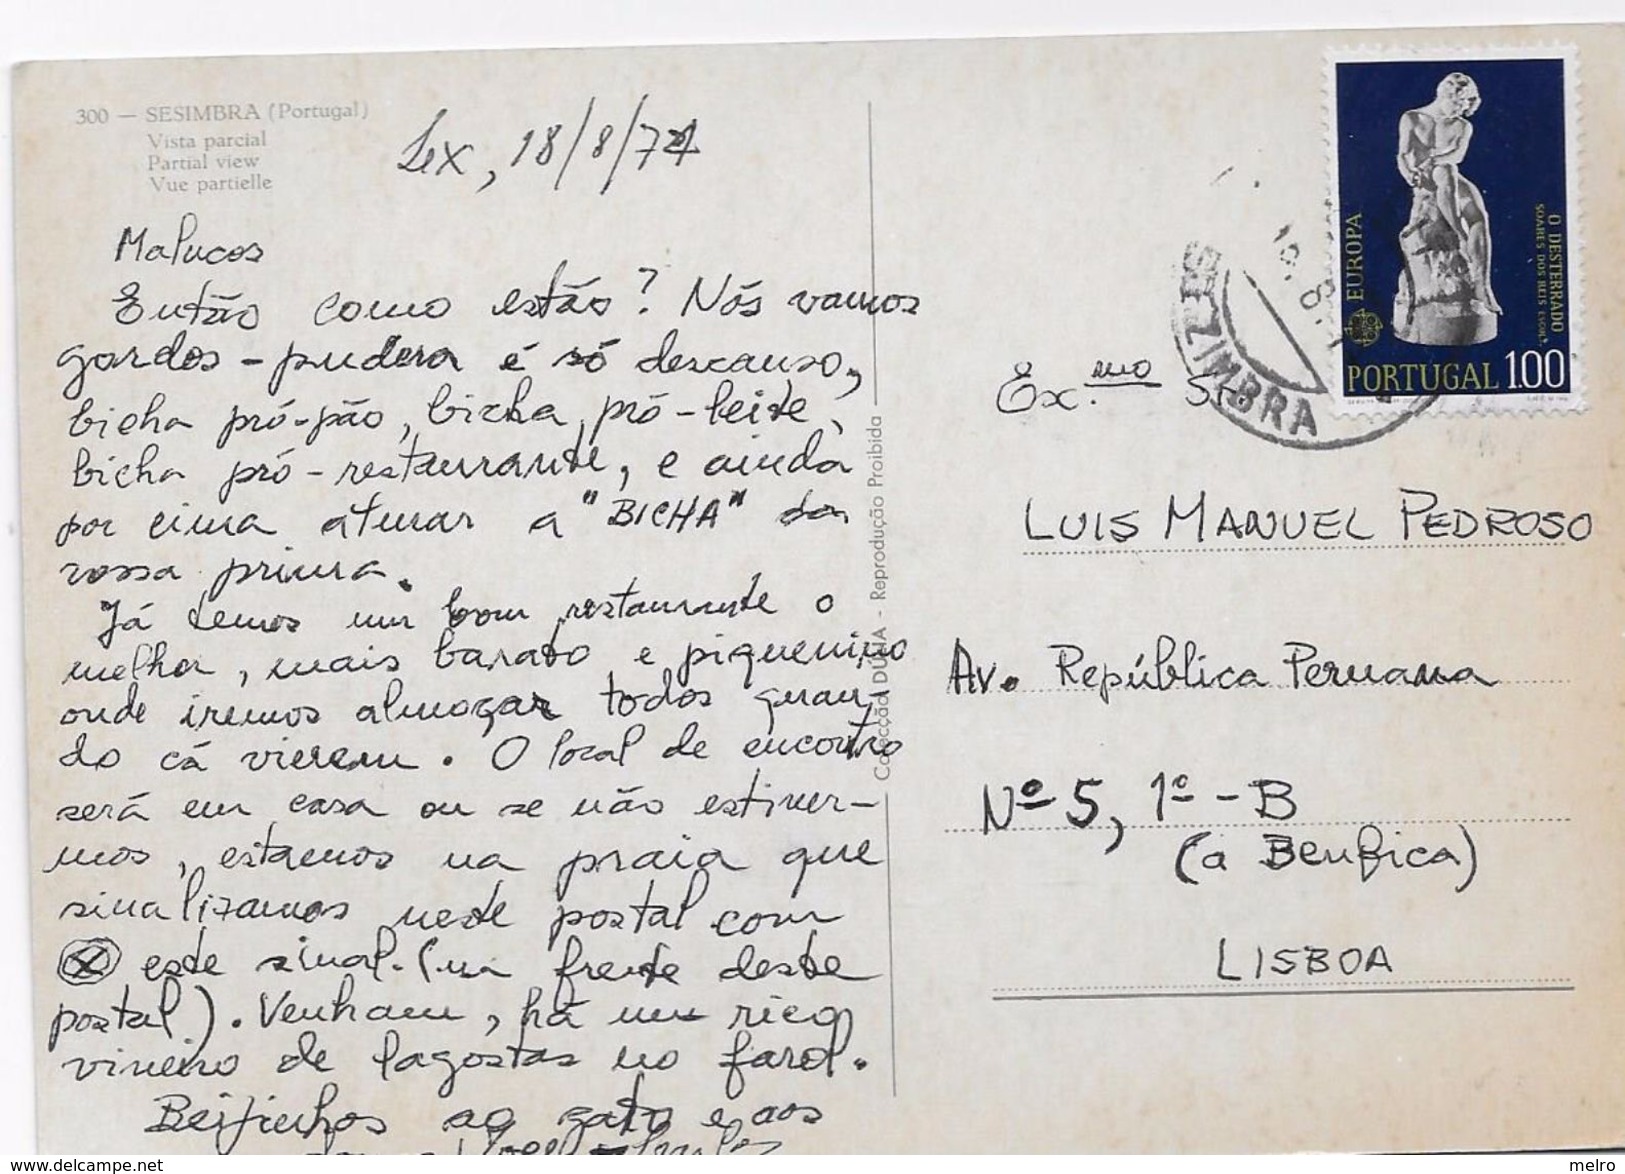 300 — SESIMBRA (Portugal)
Vista parcial
Partial view
Vue partielle
Lex, 18/8/74
Malucos
Então como estão? Nós vamos
gordos - pudera é só descanso,
bicha pró-pão, bicha pró-leite,
bicha pró-restaurante, e ainda
por cima aturar a "BICHA" da
vossa prima.
Já temos um bom restaurante o
melhor, mais barato e piquenino
onde iremos almoçar todos quan-
do cá vierem. O local de encontro
será em casa ou se não estiver-
mos, estamos na praia que
sinalizamos neste postal com
este sinal. (na frente deste
postal). Venham, há um rico
viveiro de lagostas no farol.
Beijinhos ao gato e aos
Colecção DÚLIA - Reprodução Proibida
EUROPA
O DESTERRADO
SOARES DOS REIS ESCULT.
PORTUGAL 1.00
SEZIMBRA
Ex.mo Sr.
LUIS MANUEL PEDROSO
Av. República Peruana
Nº 5, 1º - B
(a Benfica)
LISBOA
http://www.delcampe.net
melro